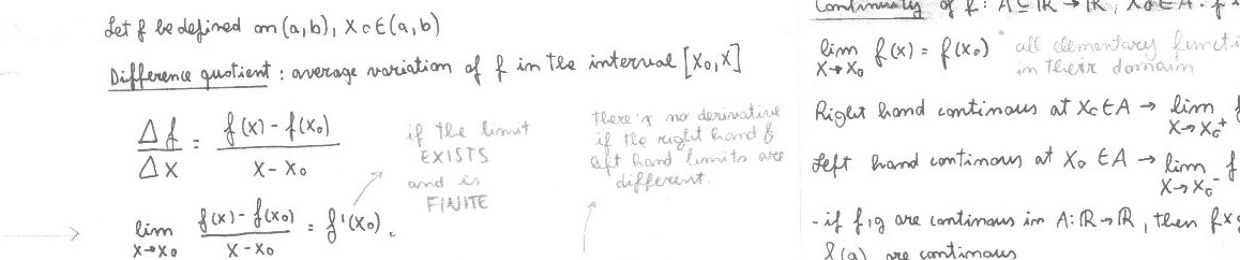 Let f be defined on (a,b), x₀∈(a,b)
Difference quotient : average variation of f in the interval [x₀,x]
Δf/Δx = (f(x) - f(x₀))/(x - x₀)
if the limit
EXISTS
and is
FINITE
lim x→x₀ (f(x) - f(x₀))/(x - x₀) = f'(x₀).
there's no derivative
if the right hand &
left hand limits are
different.
Continuity of f: A⊆ℝ→ℝ, x₀∈A.
lim x→x₀ f(x) = f(x₀)
all elementary functi
in their domain
Right hand continous at x₀∈A → lim x→x₀⁺ f
Left hand continous at x₀∈A → lim x→x₀⁻ f
- if f,g are continous in A:ℝ→ℝ, then f×g
are continous